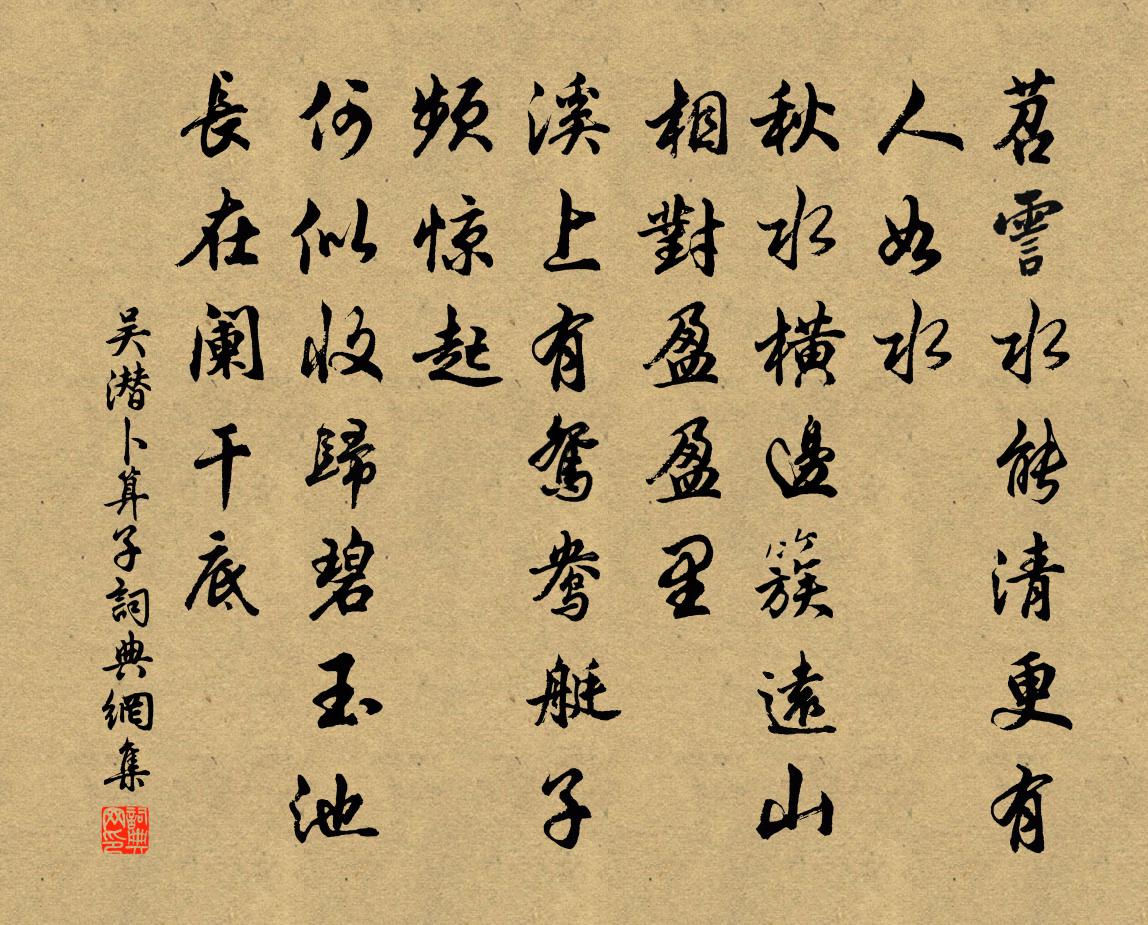 苕霅水能清更有
人如水
秋水橫邊簇遠山
相對盈盈里
溪上有鴛鴦艇子
頻惊起
何似收歸碧玉池
長在阑干底
吴潜卜算子詞典網集
詞典网印